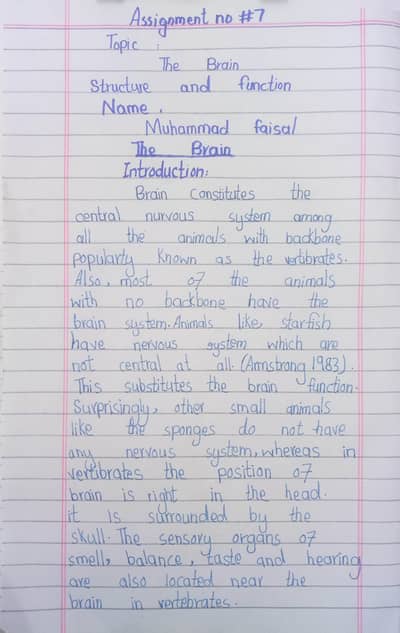 Assignment no #7
Topic :
The Brain
Structure and function
Name .
Muhammad faisal
The Brain
Introduction:
Brain Constitutes the
central nurvous system among
all the animals with backbone
popularty known as the vertibrates.
Also, most of the animals
with no backbone have the
brain system. Animals like starfish
have nervous system which are
not central at all. (Armstrong 1983).
This substitutes the brain function.
Surprisingly, other small animals
like the sponges do not have
any nervous system, whereas in
vertibrates the position of
brain is right in the head.
it Is surrounded by the
skull. The sensory organs of
smell, balance, taste and hearing
are also located near the
brain in vertebrates.